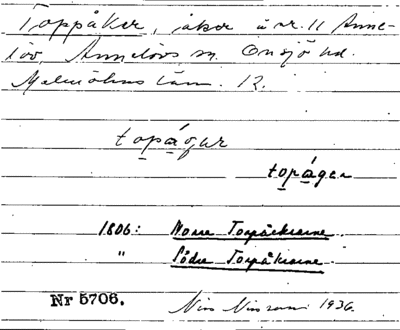 Toppåker, åker å nr. 11 Anne-
löv, Annelövs sn. Onsjö hd.
Malmöhus län. 12.
topágur
topáger
1806: Norra Torpåkrarne
" Södra Torpåkrarne
Nr 5706. Nils Nilsson 1936.